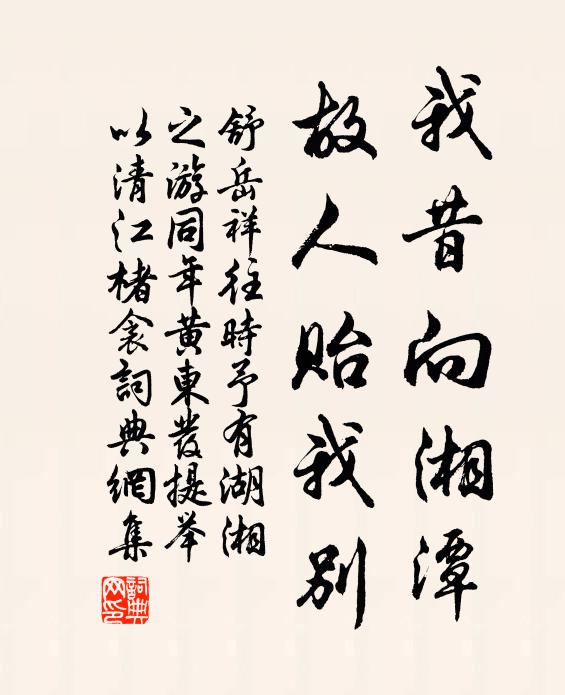 我昔向湘潭
故人貽我別
舒岳祥往時予有湖湘
之游同年黃東發提举
以清江楮衾詞典網集
詞典
网印